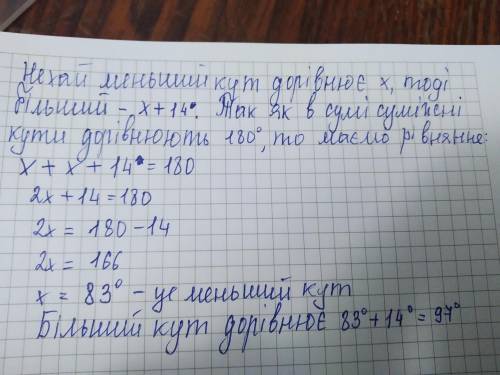 Нехай меньший кут дорівнює x, тоді
більший - x + 14°. Так як в сумі суміжні
кути дорівнюють 180°, то маємо рівняння:
x + x + 14° = 180
2x + 14 = 180
2x = 180 - 14
2x = 166
x = 83° - це меньший кут
Більший кут дорівнює 83° + 14° = 97°